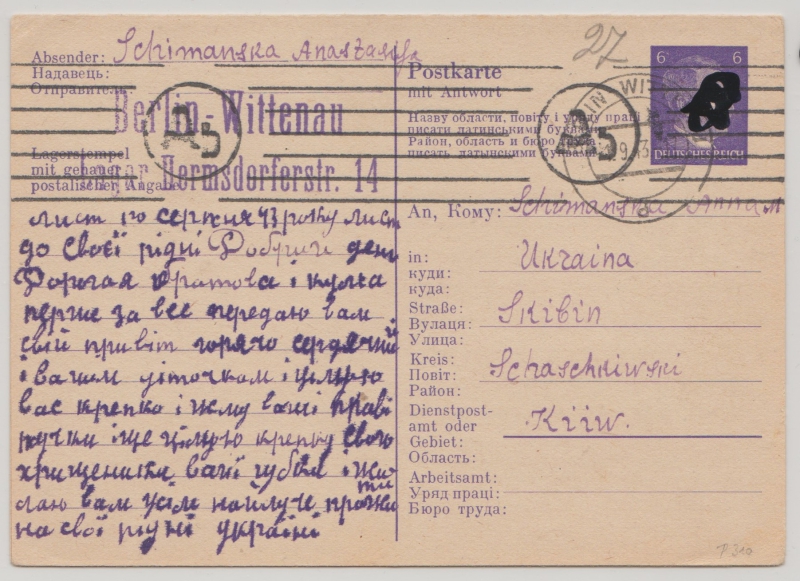 Absender: Schimanska Anastasija
Надавець:
Отправитель:
Berlin-Wittenau
Lager Hermsdorferstr. 14
Lagerstempel
mit genauer
postalischer Angabe
лист 10 серпня 43 року лист
до своєї рідні Добрий день
Дорогая братова і кумка
перше за все передаю вам
свій привіт горячо сердячий
і вашим діточкам і цілую
вас крепко і жму ваші праві
ручки і ще цілую крепку свою
хрищеники вачі губкі і жи
лаю вам усім найлуче прожити
на свої рідні україні
27
Postkarte
mit Antwort
Назву области, повіту і уряду праці
писати латинськими буквами
Район, область и бюро труда
писать латынскими буквами
6 6
DEUTSCHES REICH
An, Кому: Schimanska Anna
in: Ukraina
куди:
куда:
Straße: Skibin
Вулаця:
Улица:
Kreis: Schaschkiwski
Повіт:
Район:
Dienstpost-
amt oder Kiiw.
Gebiet:
Область:
Arbeitsamt:
Уряд праці:
Бюро труда: